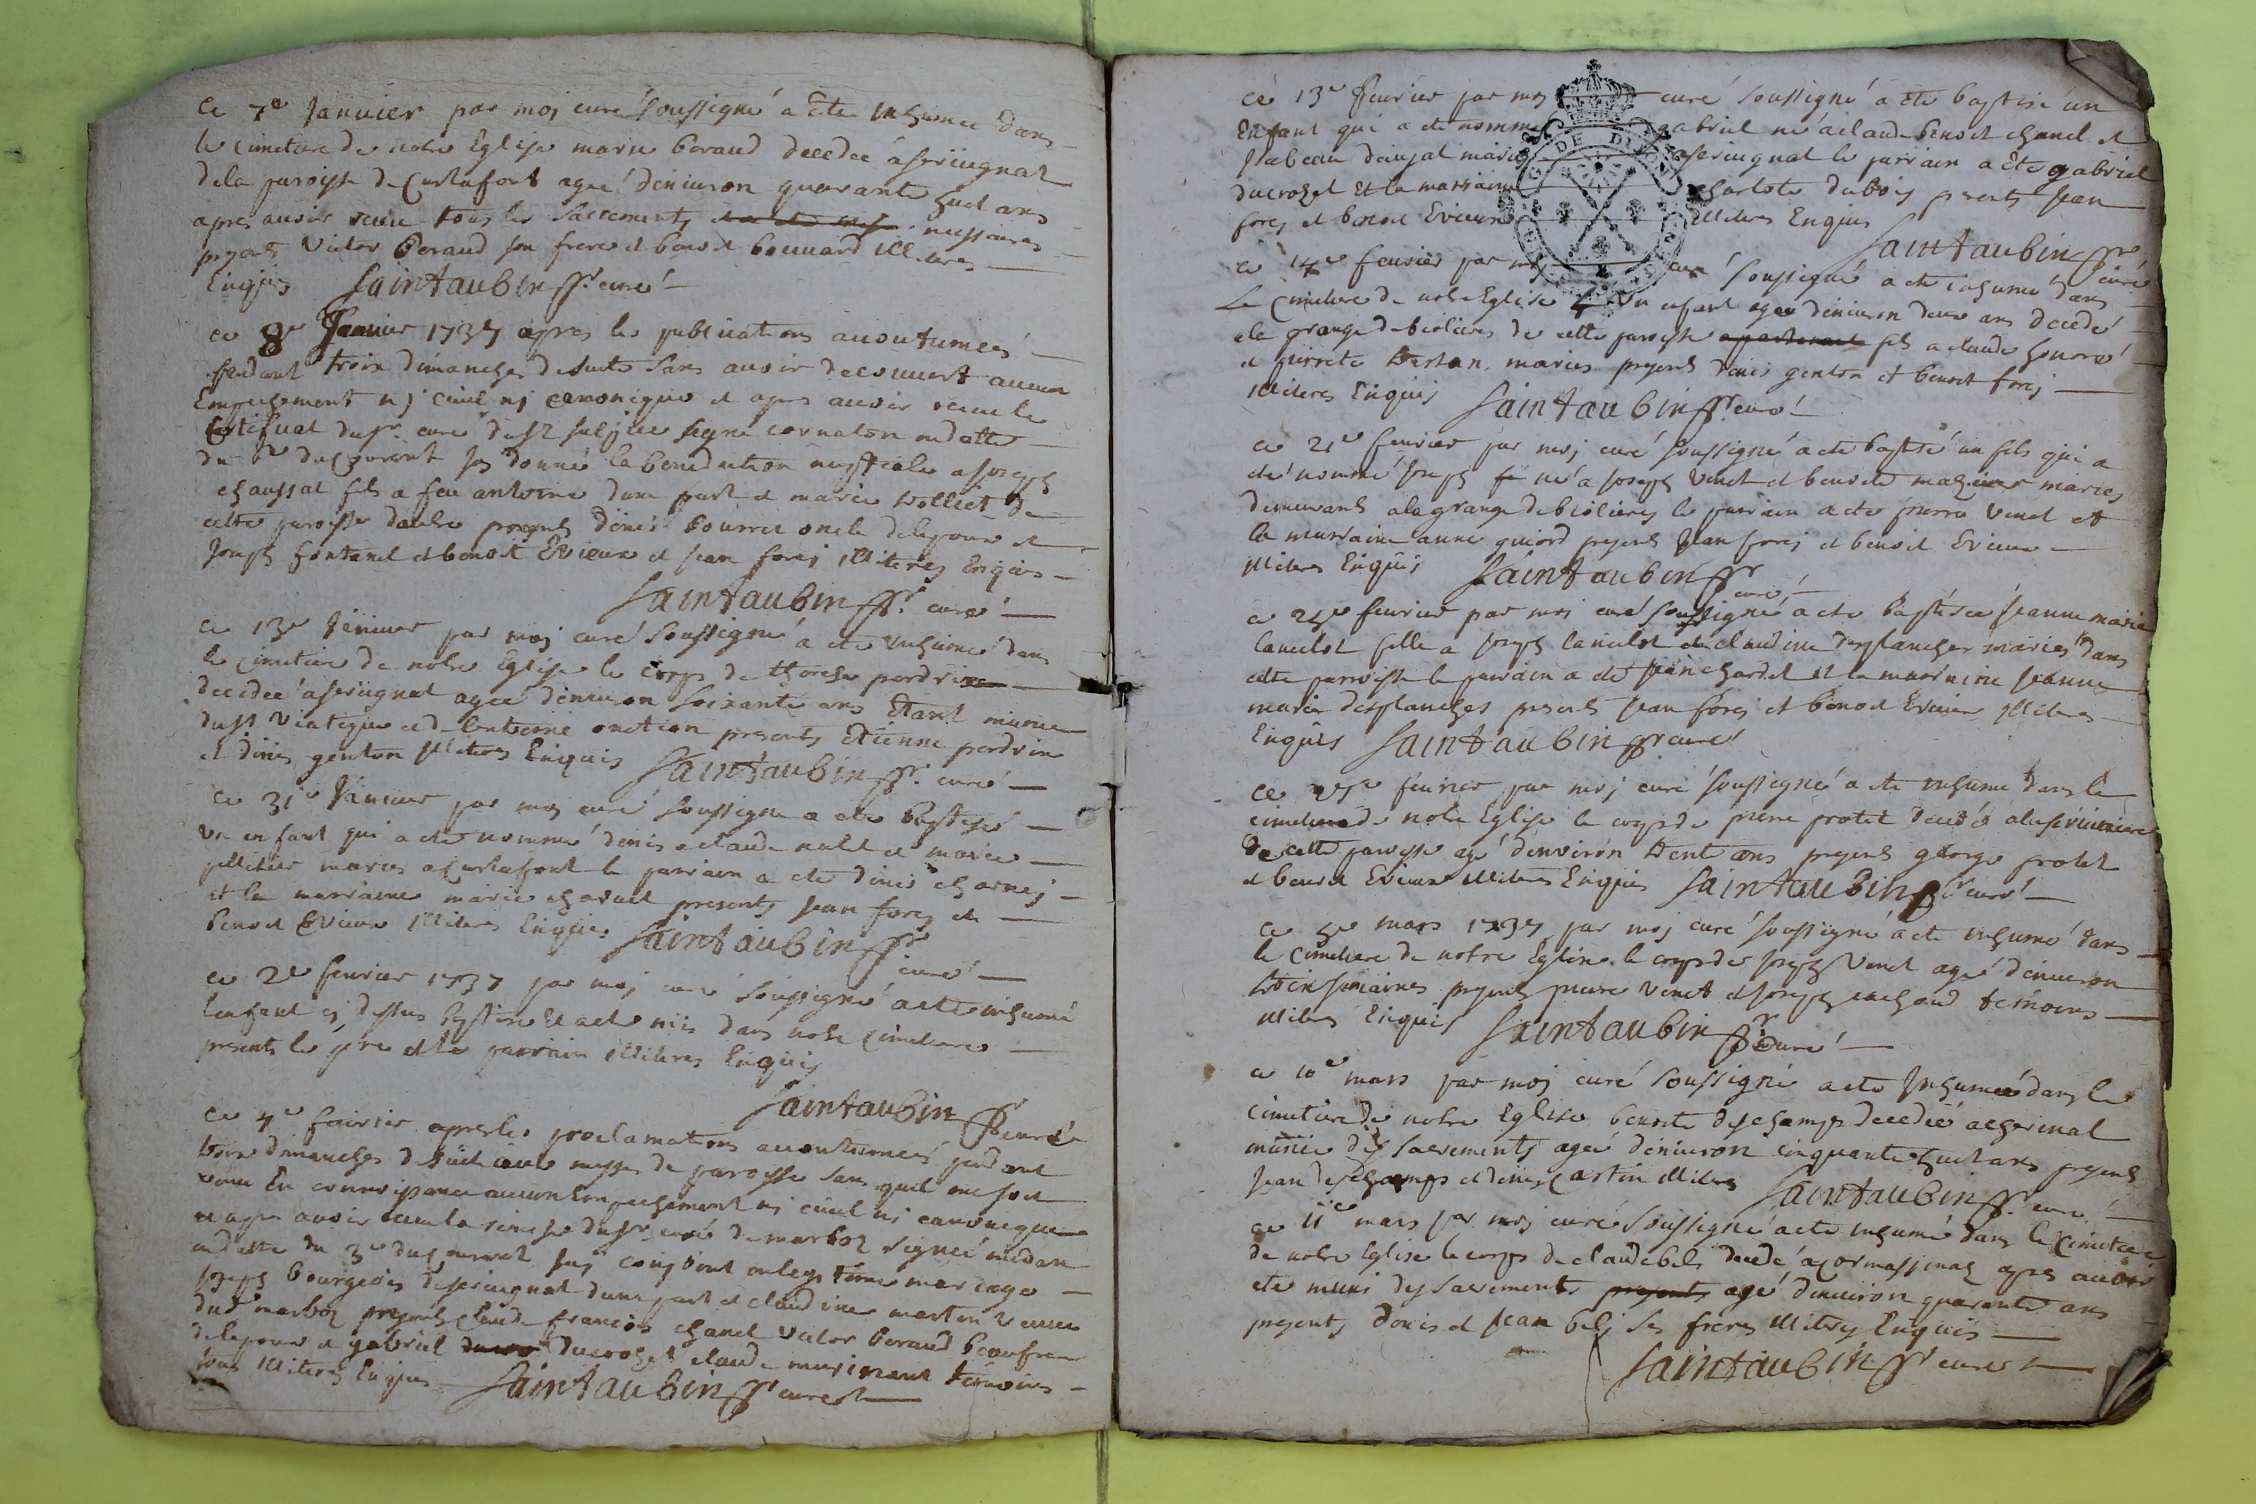 ce 7e Januier par moj curé soussigné a Eté inhumee dans
le cimetiere de notre Eglise marie beraud decedee a seriugnat
dela paroisse de Curtafont ageé denuiron quarante huit ans
apres auoir receu tous les sacrements nessaires
presents Victor Beraud son frere et benoit bouuard illiteres
Enquis Saintaubin ssr. curé
ce 8e Januier 1737 apres les publications acoutumeés
pendant trois dimanches de suite sans auoir decouuert aucun
Empechement nj ciuil nj canonique et apres auoir receu le
Certificat du sr. curé de st sulpice signé cornaton en datte
du du courant jaj donné la benediction nuptiale a joseph
chaussat fils a feu antoine dune part et marie Volliet de
cette paroisse dautre presents denis bourret oncle delepouse et
Joseph fontanel et benoit Evieux et jean forej illiteres Enquis
Saintaubin ssr. curé
ce 13e Januier par moj curé soussigné a ete inhumé dans
le cimetiere de notre Eglise le corps de perdrix
decedeé a seriugnat ageé denuiron soixante ans Etant munie
du st Viatique et d extreme onction presents Etienne perdrix
et denis genton illiteres Enquis Saintaubin ssr. curé
ce 31e Januier par moj curé soussigné a ete baptisé
un enfant qui a ete nommé denis a claude et marie
pelletier mariés a Curtafont le parrain a ete denis charnej
et la marraine marie presents jean forej et
benoit Evieux illiteres Enquis Saintaubin ssr
curé
ce 2e feurier 1737 par moj curé soussigné a ete inhumé
lenfant cj dessus baptisé Et a ete mis dans notre cimetiere
presents le pere et le parrain illiteres Enquis
Saintaubin ssr curé
ce 4e feurier apres les proclamations acoutumeés pendant
trois dimanches de suite aux messes de paroisse sans quil me soit
venu En connoissance aucun Empechement ni ciuil ni canonique
et apres auoir receu la remise du sr curé de marboz signeé
en datte du 3e du courant jaj conjoint en legitime mariage
joseph bourgeois de seriugnat dune part et claudine marton veuue
dud marboz presents claude francois chanel victor beraud beaufrere
delepoux et gabriel ducrozet claude temoins
tous illiteres Enquis Saintaubin ssr curé
ce 13e feurier par moj curé soussigné a ete baptisé un
Enfant qui a ete nommé gabriel né a claude benoit chanel et
Isabeau mariés a seriugnat le parrain a Eté gabriel
ducrozet Et la marraine charlote dubois presents jean
forej et benoit Evieux illiteres Enquis Saintaubin ssr
curé
ce 14e feurier par moj curé soussigné a ete inhumé dans
Le cimetiere de notre Eglise un enfant agé denuiron deux ans decedé
a la grange de biolieres de cette paroisse fils a claude
et pierrete mariés presents denis genton et benoit forej
illiteres Enquis Saintaubin ssr curé
ce 21e feurier par moj curé soussigné a ete baptisé un fils qui a
eté nommé joseph né a joseph Venet et benoite mariés
demeurants a la grange de biolieres le parrain a ete pierre Venet et
la marraine anne presents jean forej et benoit Evieux
illiteres Enquis Saintaubin ssr
curé
ce feurier par moj curé soussigné a ete baptisée jeanne marie
lancelot fille a joseph lancelot et claudine desplanches mariés dans
cette parroisse le parrain a eté jean chardet et la marraine jeanne
marie desplanches presents jean forej et benoit Evieux illiteres
Enquis Saintaubin ssr curé
ce feurier par moj curé soussigné a ete inhumé dans le
cimetiere de notre Eglise le corps de pierre protet decedé
de cette paroisse agé denviron trente ans presents george protet
et benoit Evieux illiteres Enquis Saintaubin ssr curé
ce mars 1737 par moj curé soussigné a ete inhumé dans
le cimetiere de notre Eglise le corps de joseph Venet agé denuiron
trois semaines presents pierre Venet et joseph temoins
illiteres Enquis Saintaubin ssr curé
ce 10e mars par moj curé soussigné a ete Inhumeé dans le
cimetiere de notre Eglise benoite deschamps decedeé a cherinal
munie des sacrements ageé denuiron cinquante huit ans presents
jean deschamps et denis illiteres Saintaubin ssr. curé
ce 11e mars par moj curé soussigné a ete inhumé dans le cimetiere
de notre Eglise le corps de claude belj decedé a apres auoir
ete muni des sacrements agé denuiron quarante ans
presents denis et jean belj ses freres illiteres Enquis
Saintaubin ssr curé